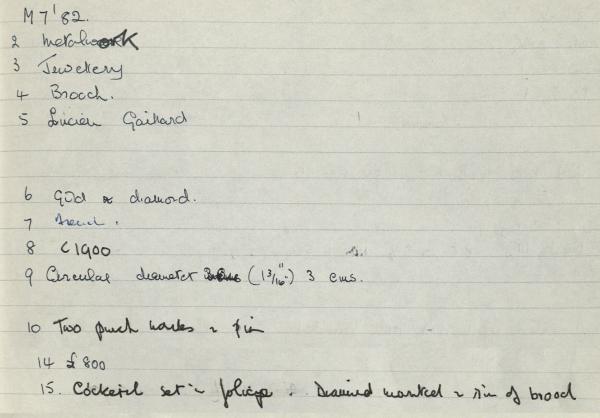 M 7 '82.
2 Metalwork
3 Jewellery
4 Brooch.
5 Lucien Gaillard
6 Gold & diamond.
7 French.
8 C1900
9 Circular diameter (1 3/16") 3 cms.
10 Two punch marks on pin
14 £800
15. Cockerel set in foliage. Diamond mounted rim of brooch